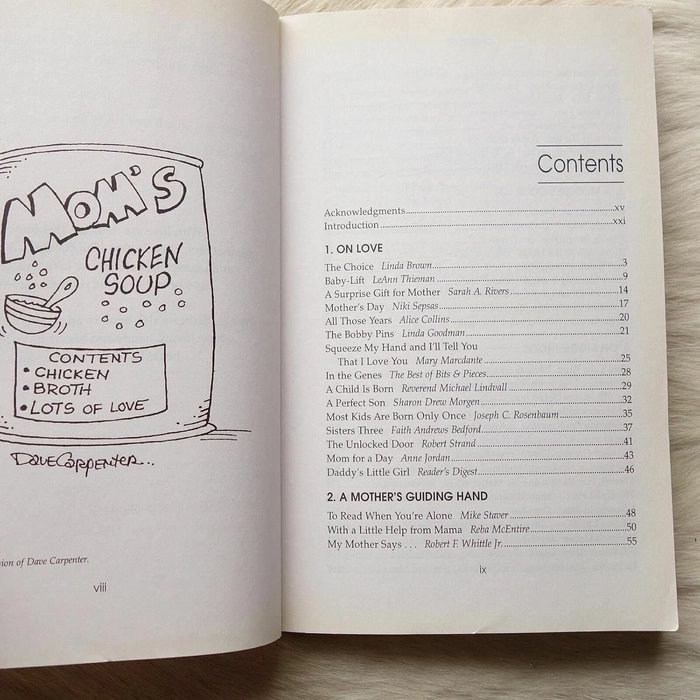 MOM'S
CHICKEN
SOUP
CONTENTS
• CHICKEN
• BROTH
• LOTS OF LOVE
Dave Carpenter...
of Dave Carpenter.
viii
Contents
Acknowledgments....................xv
Introduction....................xxi
1. ON LOVE
The Choice Linda Brown....................3
Baby-Lift LeAnn Thieman....................9
A Surprise Gift for Mother Sarah A. Rivers....................14
Mother's Day Niki Sepsas....................17
All Those Years Alice Collins....................20
The Bobby Pins Linda Goodman....................21
Squeeze My Hand and I'll Tell You
That I Love You Mary Marcdante....................25
In the Genes The Best of Bits & Pieces....................28
A Child Is Born Reverend Michael Lindvall....................29
A Perfect Son Sharon Drew Morgen....................32
Most Kids Are Born Only Once Joseph C. Rosenbaum....................35
Sisters Three Faith Andrews Bedford....................37
The Unlocked Door Robert Strand....................41
Mom for a Day Anne Jordan....................43
Daddy's Little Girl Reader's Digest....................46
2. A MOTHER'S GUIDING HAND
To Read When You're Alone Mike Staver....................48
With a Little Help from Mama Reba McEntire....................50
My Mother Says . . . Robert F. Whittle Jr.....................55
ix